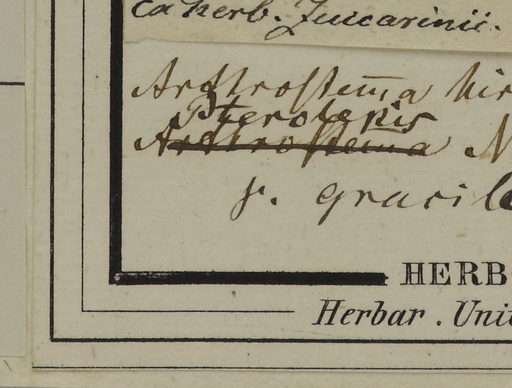 Ex herb. Zuccarinii.
Arthrostemma hir
Pterolepis
Arthrostemma N
γ. gracile
HERB
Herbar. Unive